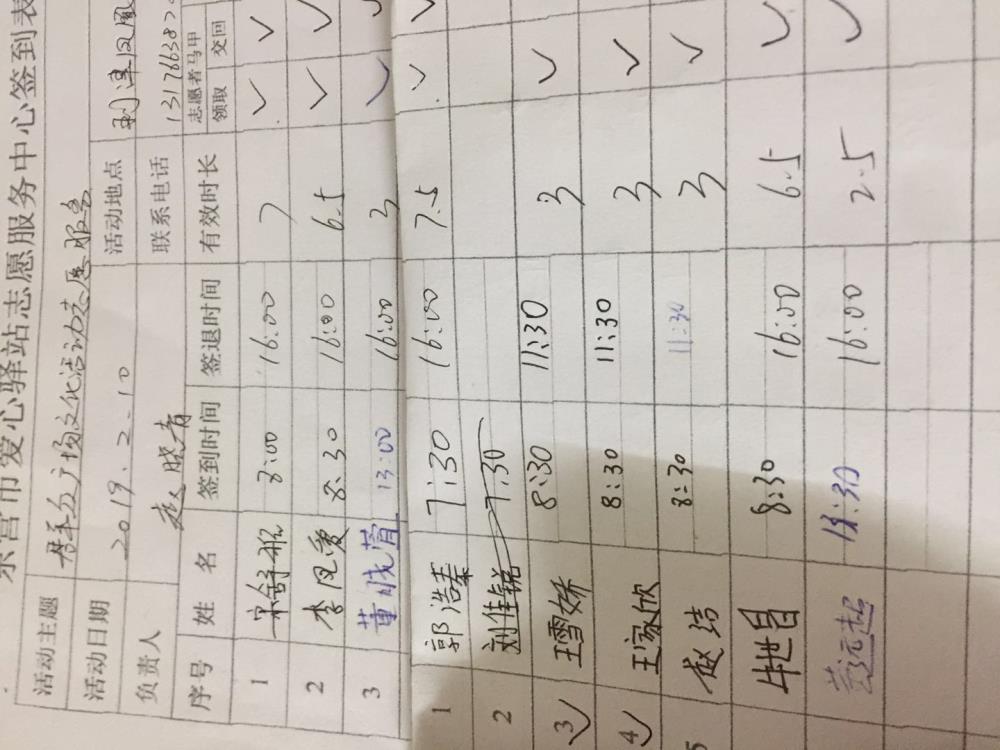 东营市爱心驿站志愿服务中心签到表
活动主题 广场文化活动志愿服务
活动日期 2019.2.10 活动地点
负责人 赵晓青 联系电话
序号 姓名 签到时间 签退时间 有效时长 志愿者马甲 领取 交回
1 8:00 16:00 7 ✓ ✓
2 李凤爱 8:30 16:00 6.5 ✓ ✓
3 董晓萱 13:00 16:00 3 ✓ ✓
1 郭浩蓁 7:30 16:00 7.5 ✓ ✓
2 刘佳锐 7:30
3 ✓ 王雪娇 8:30 11:30 3 ✓
4 ✓ 王家欣 8:30 11:30 3 ✓
5 赵洁 8:30 11:30 3 ✓
牛世昌 8:30 16:00 6.5 ✓
16:00 2.5 ✓